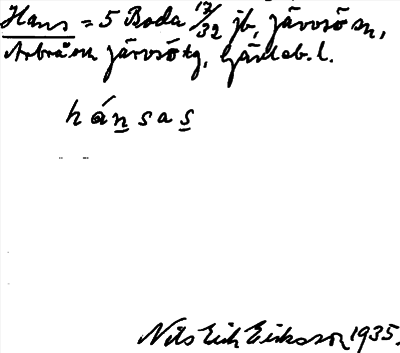 Hans = 5 Boda 17/32 jb, Järvsö sn,
Arbrå och Järvsö tg, Gävleb. l.
hánsas
Nils Erik Eriksson 1935.